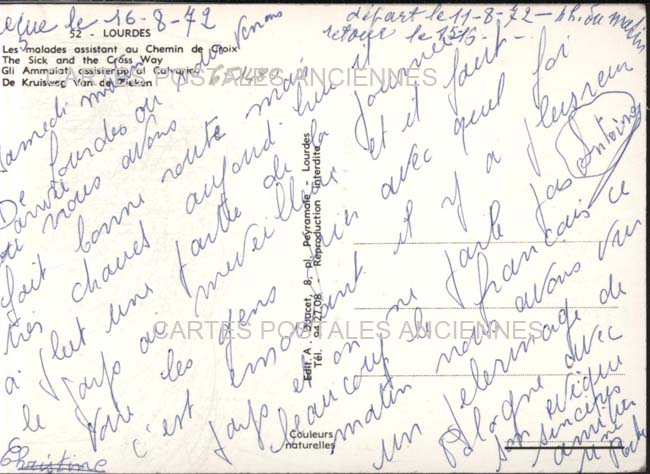 reçue le 16-8-72
départ le 11-8-72 - 4h. du matin
retour le 15/16 -
52 - LOURDES
Les malades assistant au Chemin de Croix
The Sick and the Cross Way
Gli Ammalati assistenti al Calvario
De Kruisweg Van de Zieken
CARTES POSTALES ANCIENNES
Samedi matin
De Lourdes ou nous venons
d'arriver nous avons
fait bonne route mais
très chaud aujourd'hui il
a plut une partie de la journée
le pays ai merveilleux et il faut
voir les gens prier avec quel foi
c'est émouvant et il y a plusieurs
pays et on ne parle pas
beaucoup le français ce
matin nous avons vu
un pelerinage de
Pologne avec
son evêque
sincères
amitiés
Antoine
Christine
Edit. A. Doucet, 8, pl. Peyramale - Lourdes
Tél. 94.27.08 - Reproduction interdite
CARTES POSTALES ANCIENNES
Couleurs
naturelles